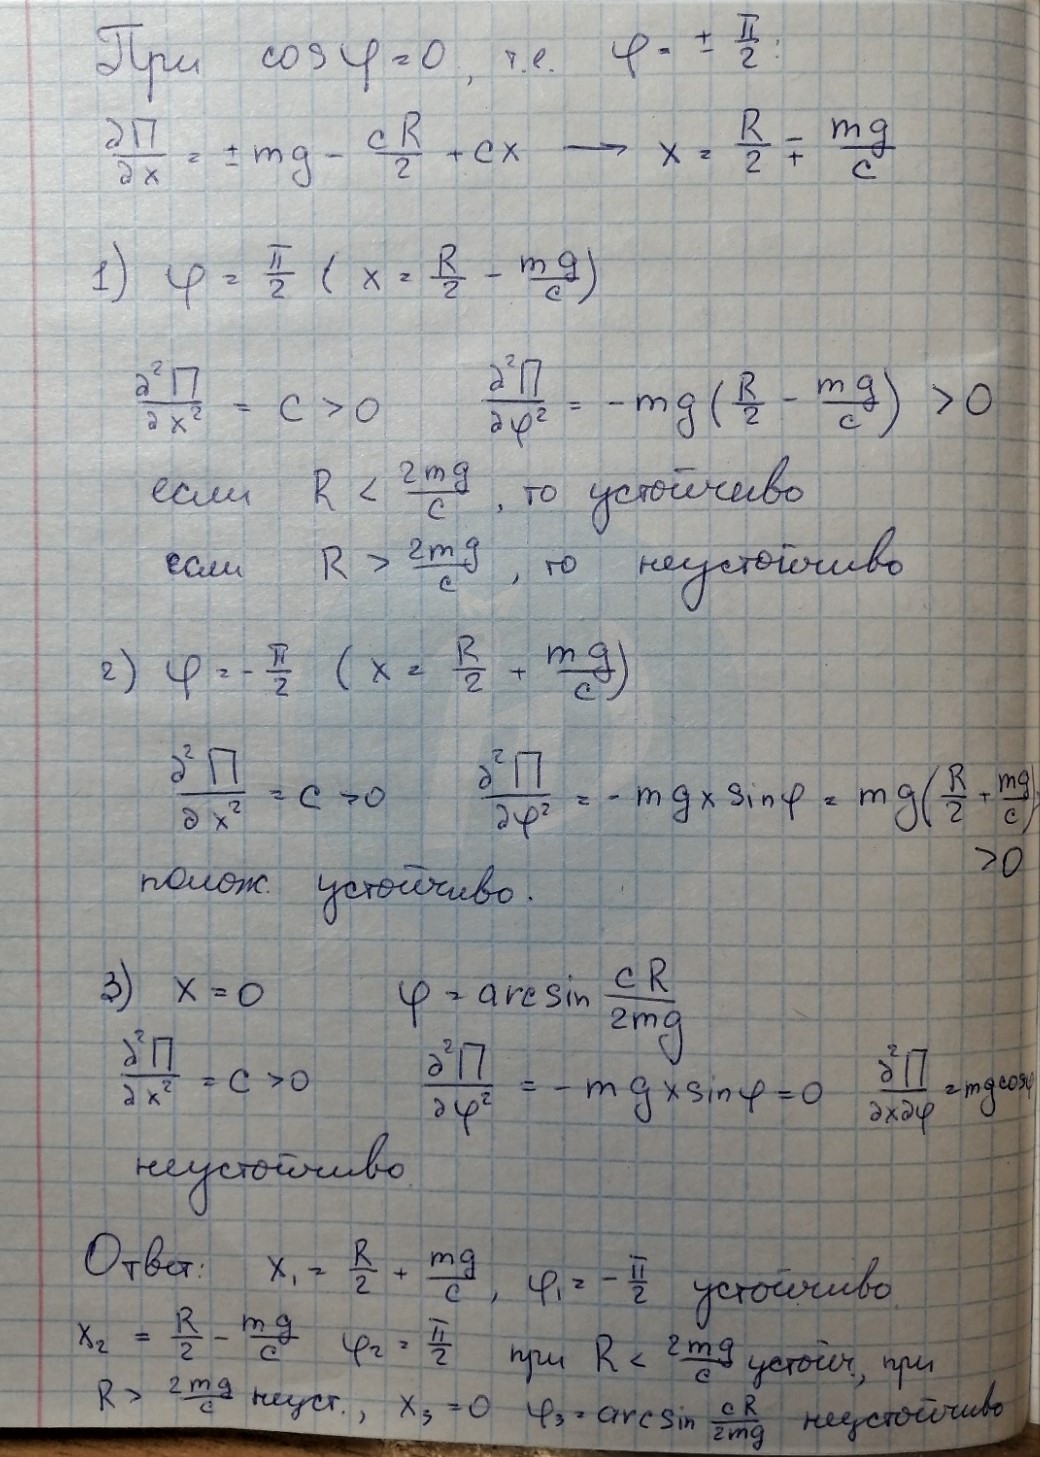 При cosφ=0, т.е. φ=± π/2:
∂П/∂x = ± mg - cR/2 + cx → x = R/2 ∓ mg/c
1) φ = π/2 ( x = R/2 - mg/c )
∂²П/∂x² = c > 0 ∂²П/∂φ² = -mg(R/2 - mg/c) > 0
если R < 2mg/c, то устойчиво
если R > 2mg/c, то неустойчиво
2) φ = - π/2 ( x = R/2 + mg/c )
∂²П/∂x² = c > 0 ∂²П/∂φ² = - mgx sinφ = mg(R/2 + mg/c)
>0
полож. устойчиво.
3) x = 0 φ = arcsin cR/2mg
∂²П/∂x² = c > 0 ∂²П/∂φ² = - mgx sinφ = 0 ∂²П/∂x∂φ = mg cosφ
неустойчиво
Ответ: x₁ = R/2 + mg/c, φ₁ = - π/2 устойчиво
x₂ = R/2 - mg/c φ₂ = π/2 при R < 2mg/c устойч., при
R > 2mg/c неуст., x₃ = 0 φ₃ = arcsin cR/2mg неустойчиво